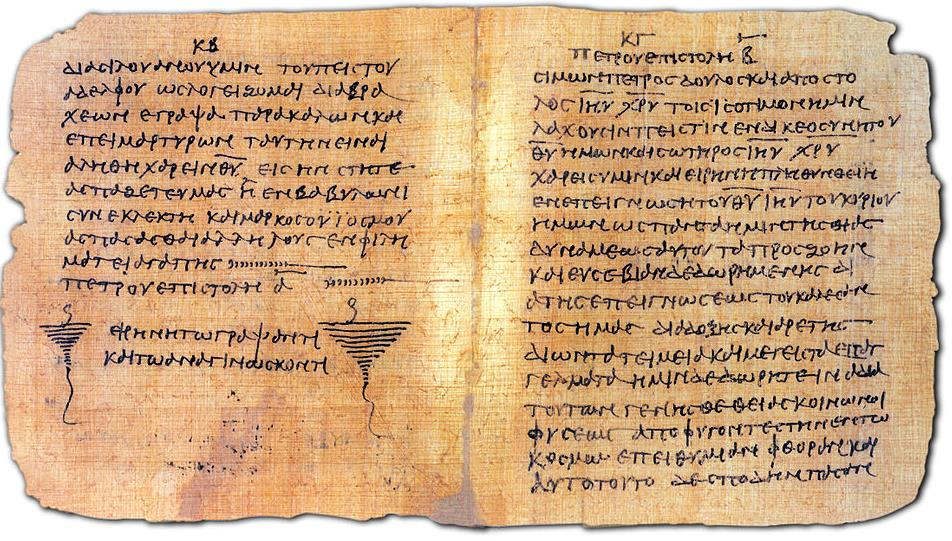 ΚΒ
ΔΙΑϹΙΛΟΥΑΝΟΥΥΜΙΝ ΤΟΥΠΕΙϹΤΟΥ
ΑΔΕΛΦΟΥ ΩϹΛΟΓΕΙΖΟΜΑΙ ΔΙΑΒΡΑ
ΧΕΩΝ ΕΓΡΑΨΑ ΠΑΡΑΚΑΛΩΝΚΑΙ
ΕΠΕΙΜΑΡΤΥΡΩΝ ΤΑΥΤΗΝΕΙΝΑΙ
ΑΛΗΘΗΧΑΡΕΙΝΘ̅Υ̅ ΕΙϹΗΝϹΤΗΤΕ
ΑϹΠΑΖΕΤΕΥΜΑϹ Η ΕΝΒΑΒΥΛΩΝΙ
ϹΥΝΕΚΛΕΚΤΗ ΚΑΙΜΑΡΚΟϹΟΥΙΟϹΜΟΥ
ΑϹΠΑϹΑϹΘΑΙΑΛΛΗΛΟΥϹ ΕΝΦΙΛΗ
ΜΑΤΕΙΑΓΑΠΗϹ
ΠΕΤΡΟΥΕΠΙϹΤΟΛΗ Α̅
ΕΙΡΗΝΗΤΩΓΡΑΨΑΝΤΙ
ΚΑΙΤΩΑΝΑΓΙΝΩϹΚΟΝΤΙ
ΚΓ
ΠΕΤΡΟΥΕΠΙϹΤΟΛΗ Β̅
ϹΙΜΩΝΠΕΤΡΟϹ ΔΟΥΛΟϹΚΑΙΑΠΟϹΤΟ
ΛΟϹΙ̅Η̅Υ̅ Χ̅Ρ̅Υ̅ ΤΟΙϹΙϹΟΤΙΜΟΝΗΜΙΝ
ΛΑΧΟΥϹΙΝΠΕΙϹΤΙΝ ΕΝΔΙΚΕΟϹΥΝΗΤΟΥ
Θ̅Υ̅ ΗΜΩΝΚΑΙϹΩΤΗΡΟϹΙ̅Η̅Υ̅ Χ̅Ρ̅Υ̅
ΧΑΡΕΙϹΥΜΙΝΚΑΙΕΙΡΗΝΗΠΛΗΘΥΝΘΕΙΗ
ΕΝΕΠΕΙΓΝΩϹΗΤΟΥΘ̅Υ̅ Ι̅Η̅Υ̅ ΤΟΥΚΥΡΙΟΥ
ΗΜΩΝ ΩϹΠΑΝΤΑΗΜΙΝΤΗϹΘΙΑϹ
ΔΥΝΑΜΕΩϹΑΥΤΟΥ ΤΑΠΡΟϹΖΩΗΝ
ΚΑΙΕΥϹΕΒΙΑΝΔΕΔΩΡΗΜΕΝΗϹ ΔΙ
ΑΤΗϹΕΠΕΙΓΝΩϹΕΩϹ ΤΟΥΚΑΛΕϹΑΝ
ΤΟϹΗΜΑϹ ΔΙΑΔΟΞΗϹΚΑΙΑΡΕΤΗϹ
ΔΙΩΝΤΑΤΕΙΜΕΙΑΚΑΙΜΕΓΕΙϹΤΑΕΠΑΓ
ΓΕΛΜΑΤΑ ΗΜΙΝΔΕΔΩΡΗΤΕΙΝΑΔΙΑ
ΤΟΥΤΩΝ ΓΕΝΗϹΘΕΘΕΙΑϹΚΟΙΝΩΝΟΙ
ΦΥϹΕΩϹ ΑΠΟΦΥΓΟΝΤΕϹΤΗΝΕΝΤΩ
ΚΟϹΜΩ ΕΠΕΙΘΥΜΙΑΝ ΦΘΟΡΑΝΚΑΙ
ΑΥΤΟΤΟΥΤΟ ΔΕϹΠΟΔΗΝΠΑϹΑΝ